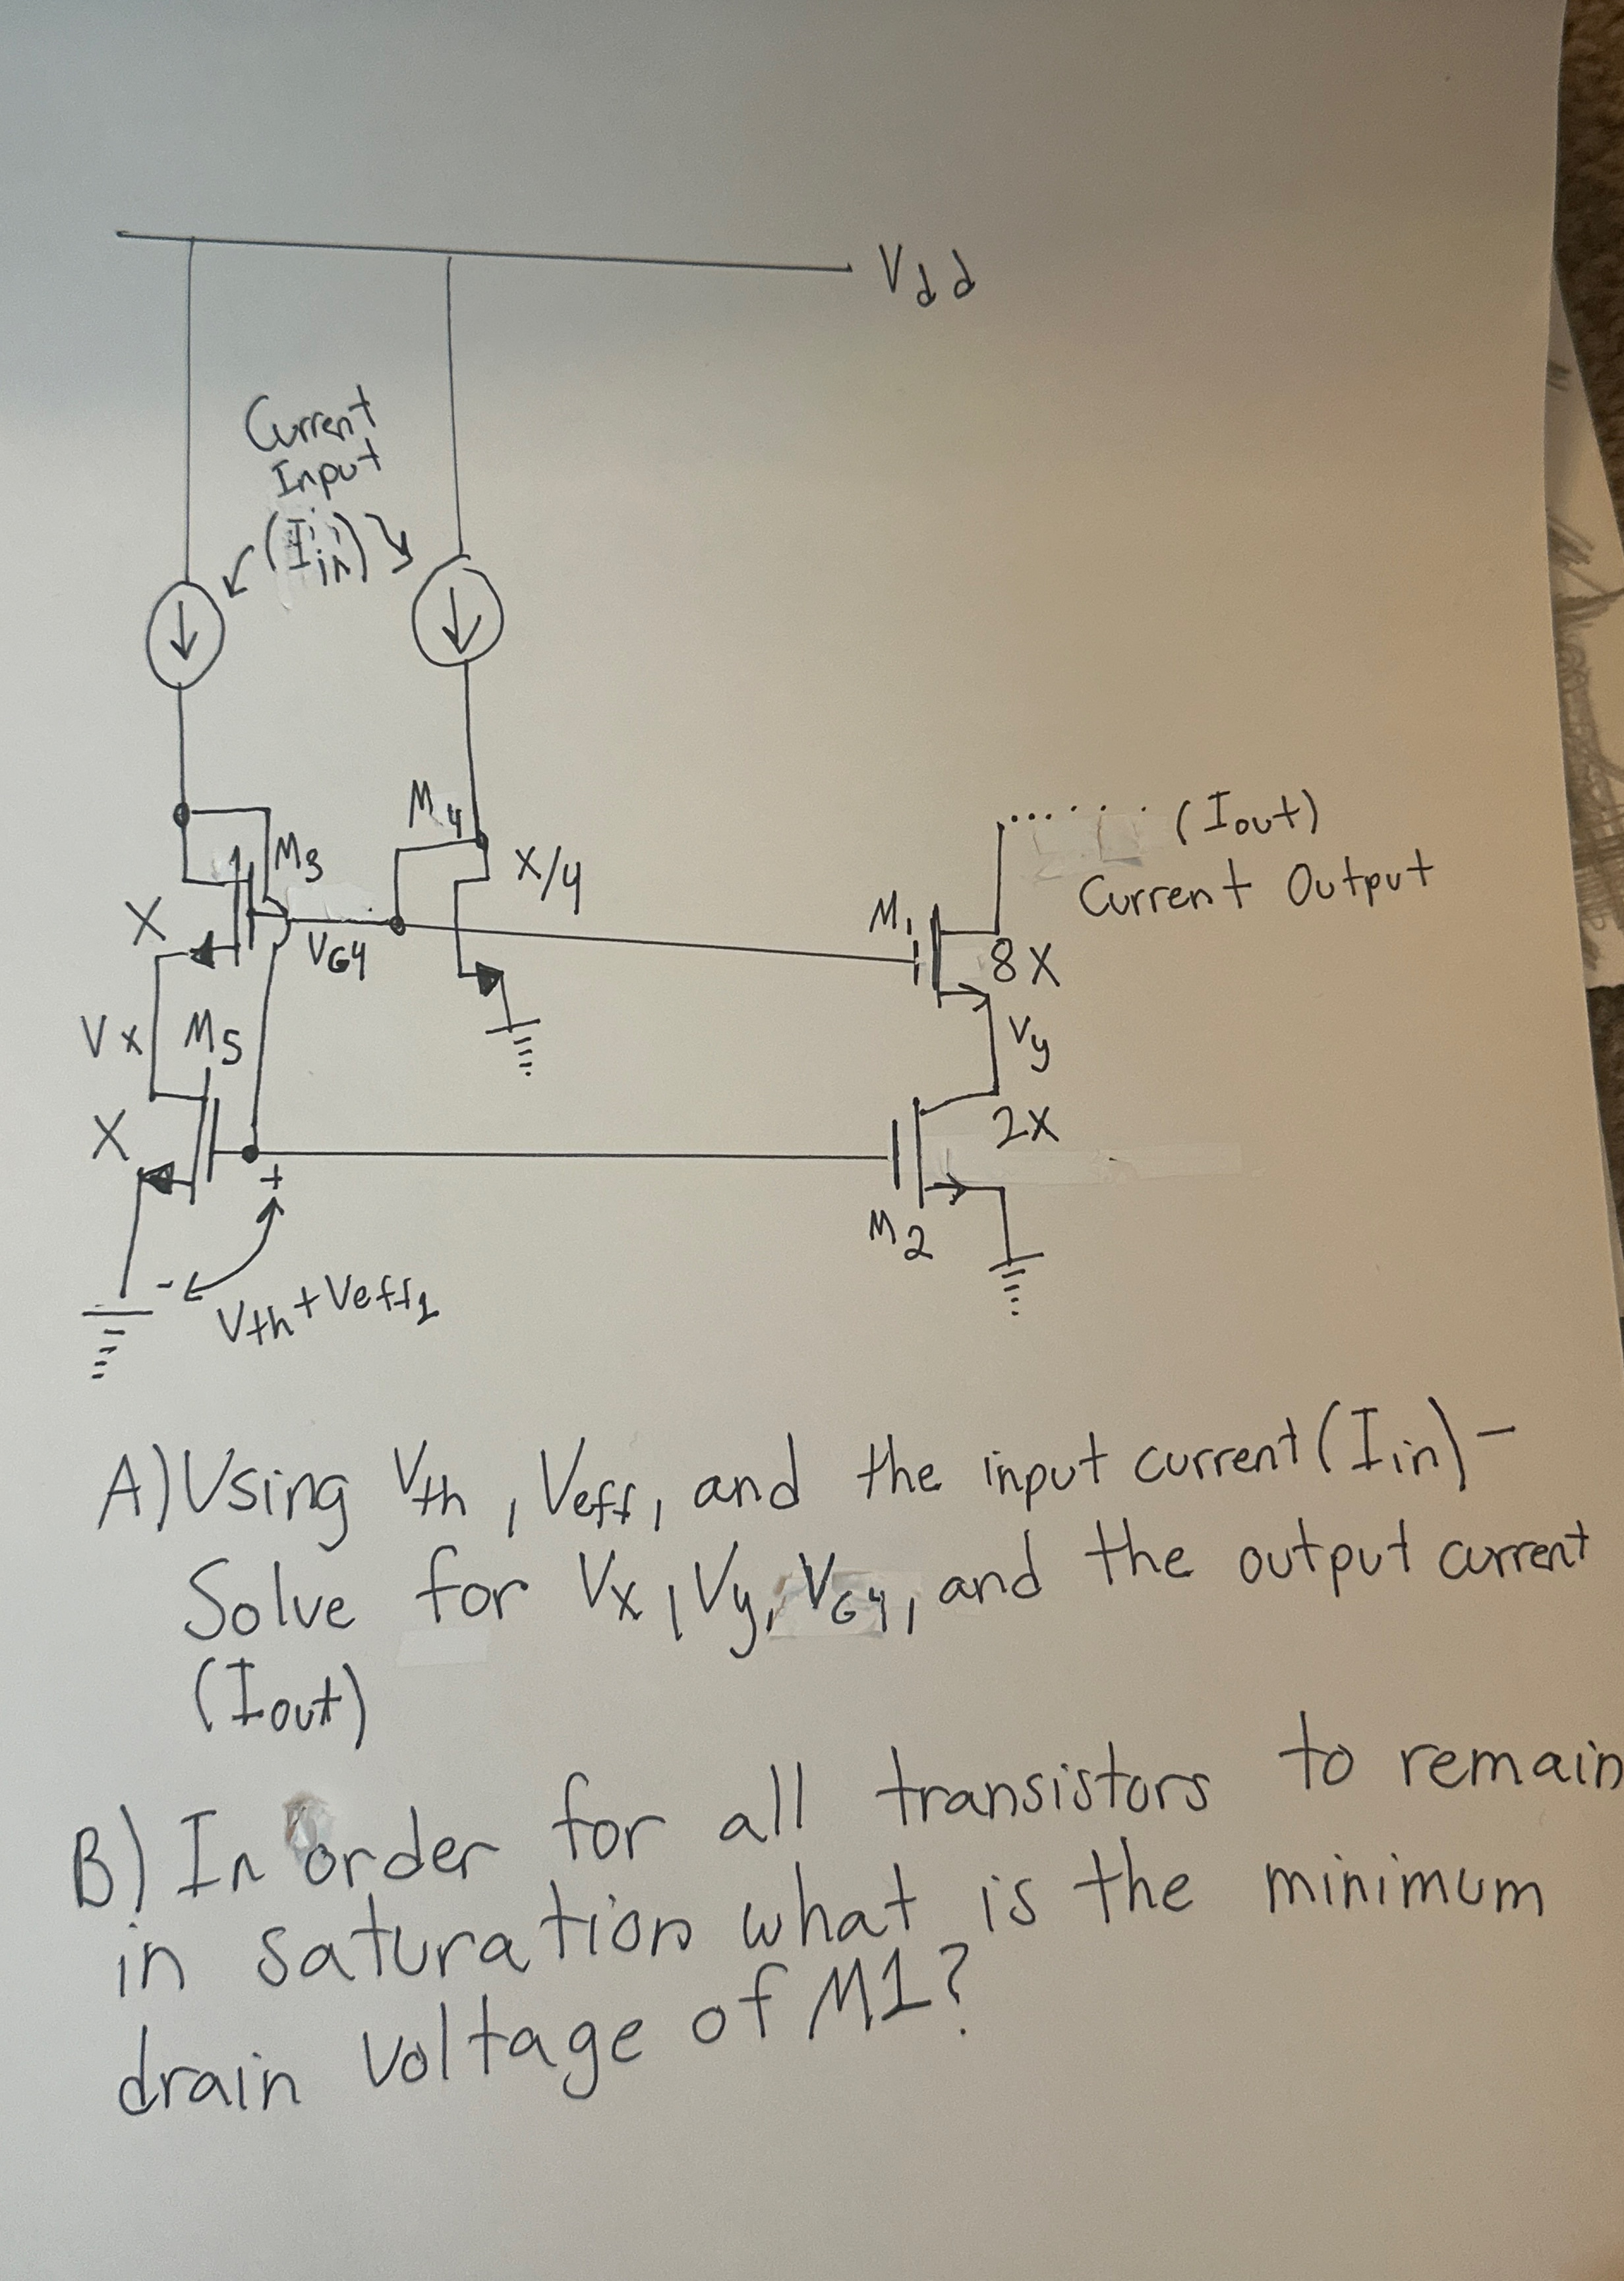 Vdd
Current
Input
(Iin)
M3
M4
X/4
X
VG4
(Iout)
Current Output
M1
8X
Vx
M5
Vy
X
2X
+
M2
-
Vth+Veff1
A) Using Vth, Veff, and the input current (Iin) -
Solve for Vx, Vy, VG4, and the output current
(Iout)
B) In order for all transistors to remain
in saturation what is the minimum
drain voltage of M1?